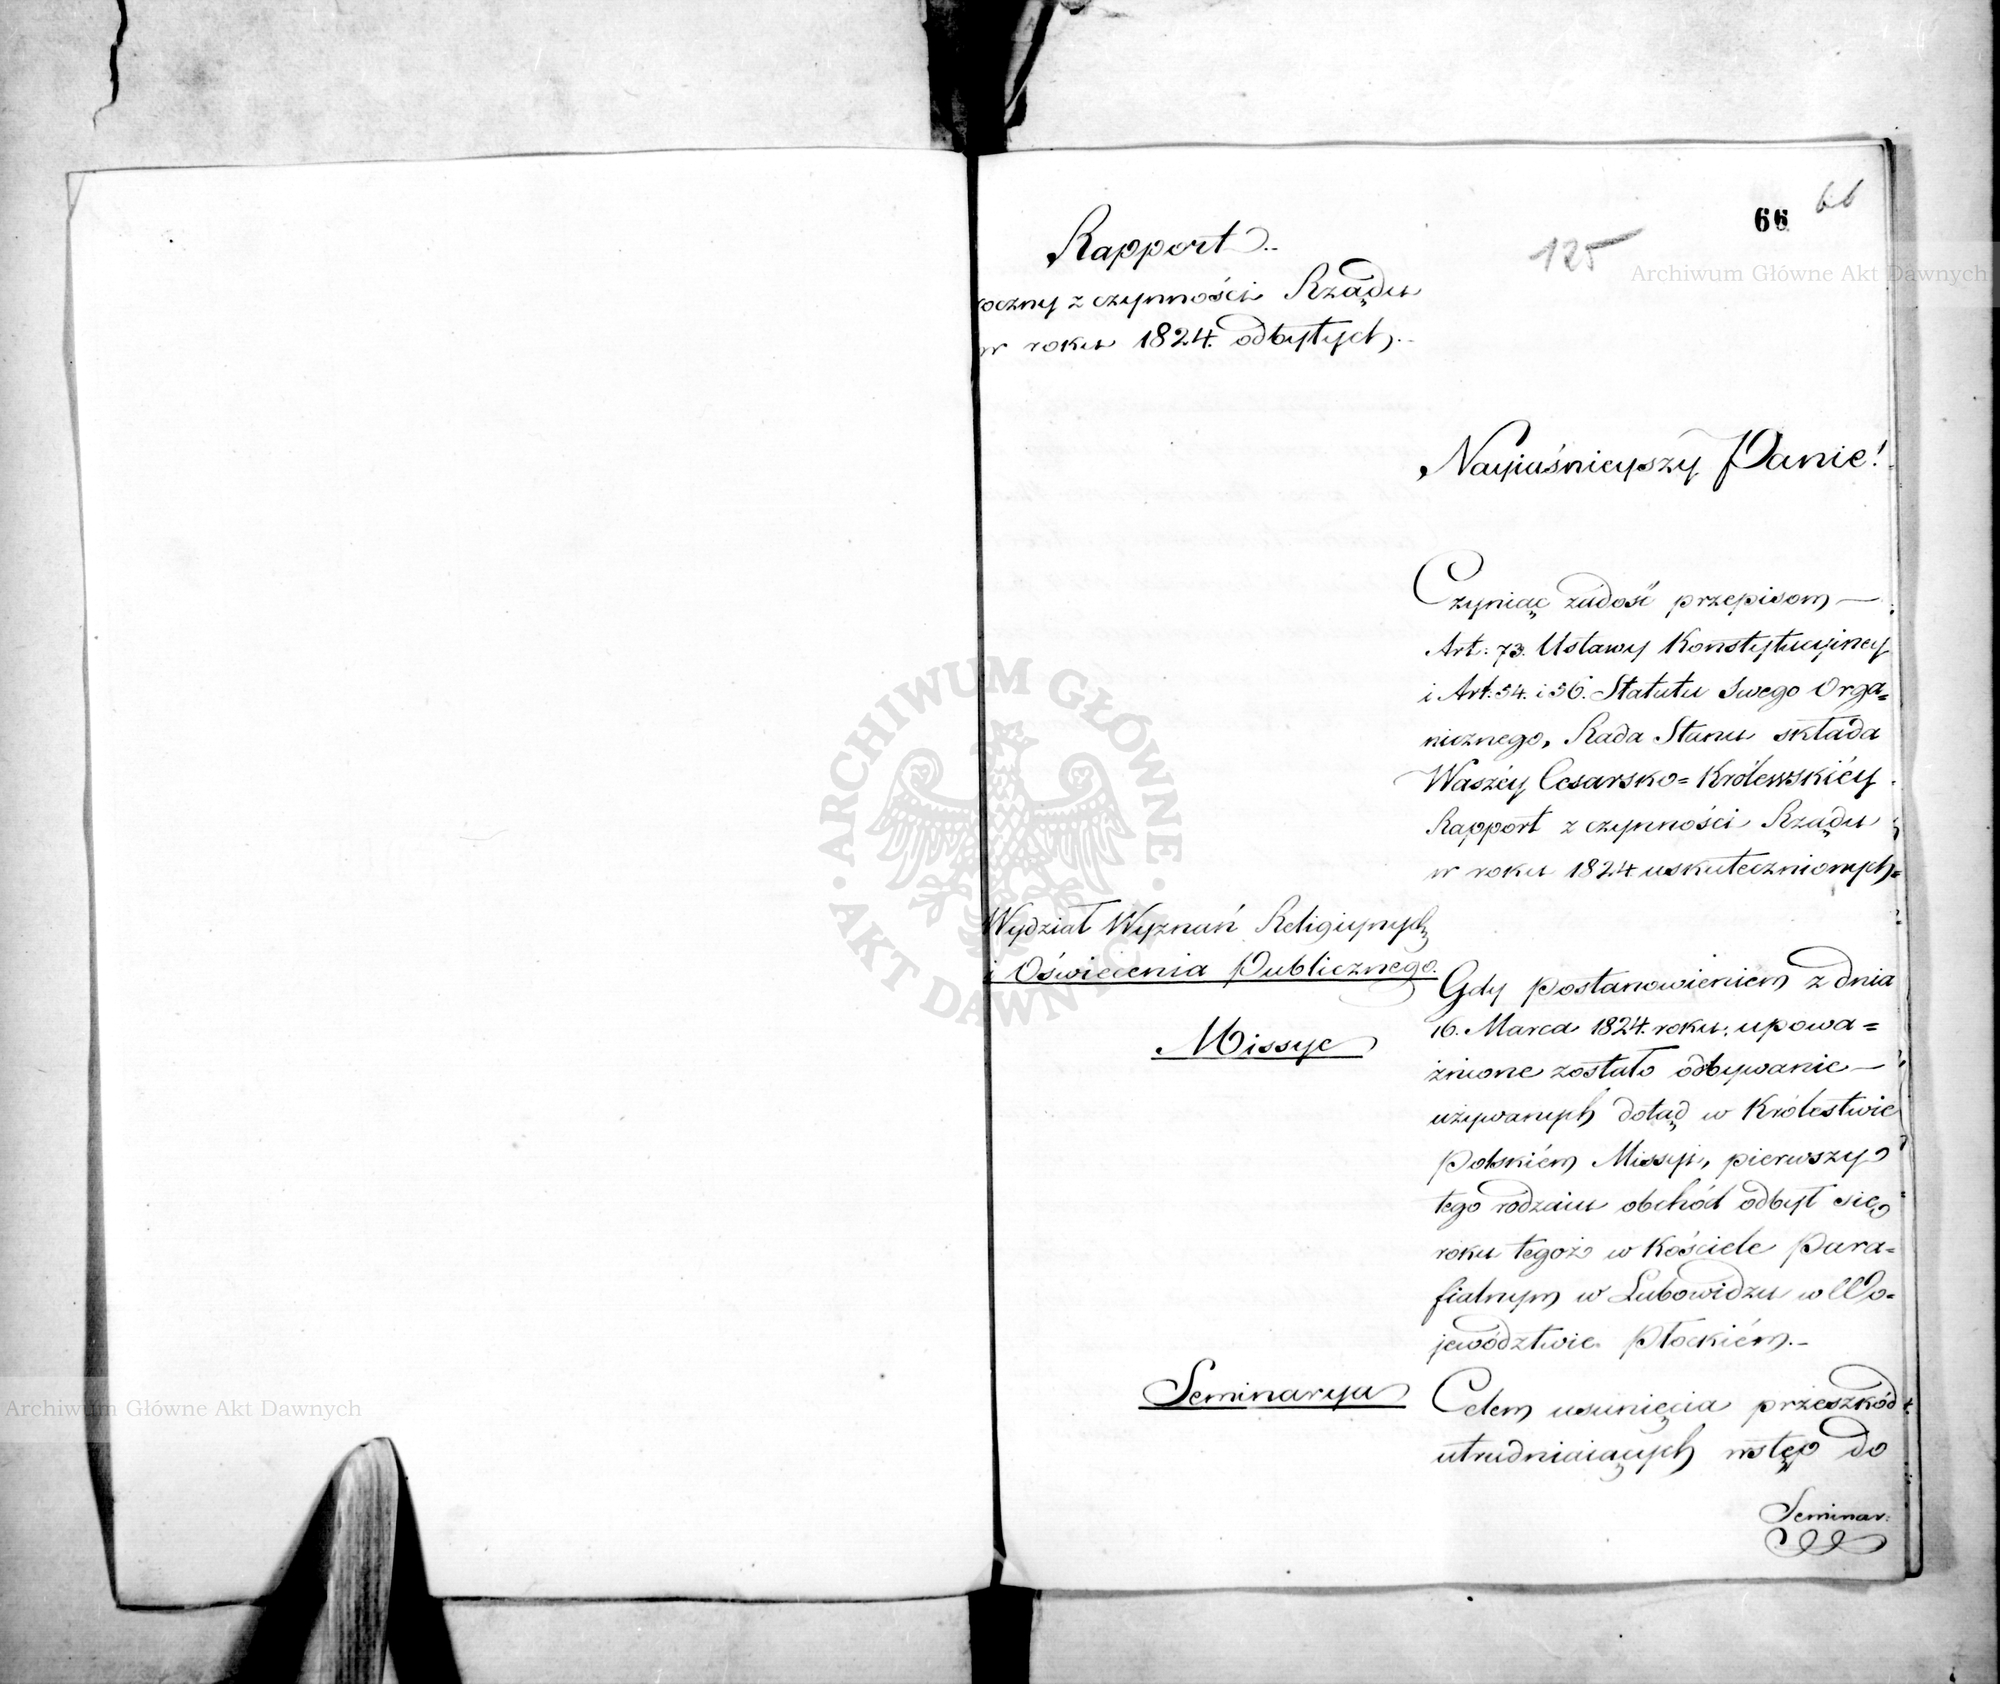 66
66
125
Rapport
oczny z czynności Rządu
w roku 1824. odbytych.
Nayiaśnieyszy Panie!
Czyniąc zadość przepisom —
Art: 73. Ustawy Konstytucyiney
i Art. 34. i 36. Statutu Swego Orga=
nicznego, Rada Stanu składa
Waszéy Cesarsko=Królewskiéy
Rapport z czynności Rządu
w roku 1824 uskutecznionych=
Wydział Wyznań Religiynych
i Oświecenia Publicznego.
Missye
Gdy postanowieniem z dnia
16. Marca 1824. roku, upowa=
żnione zostało odbywanie —
używanych dotąd w Królestwie
Polskiém Missyi, pierwszy
tego rodzaiu obchód odbył się
roku tegoż w Kościele Para=
fialnym w Lubowidzu w Wo=
jewództwie Płockiém.–
Seminarya
Celem usunięcia przeszkód
utrudniaiących wstęp do
Seminar:
Archiwum Główne Akt Dawnych
ARCHIWUM GŁÓWNE AKT DAWNYCH
Archiwum Główne Akt Dawnych